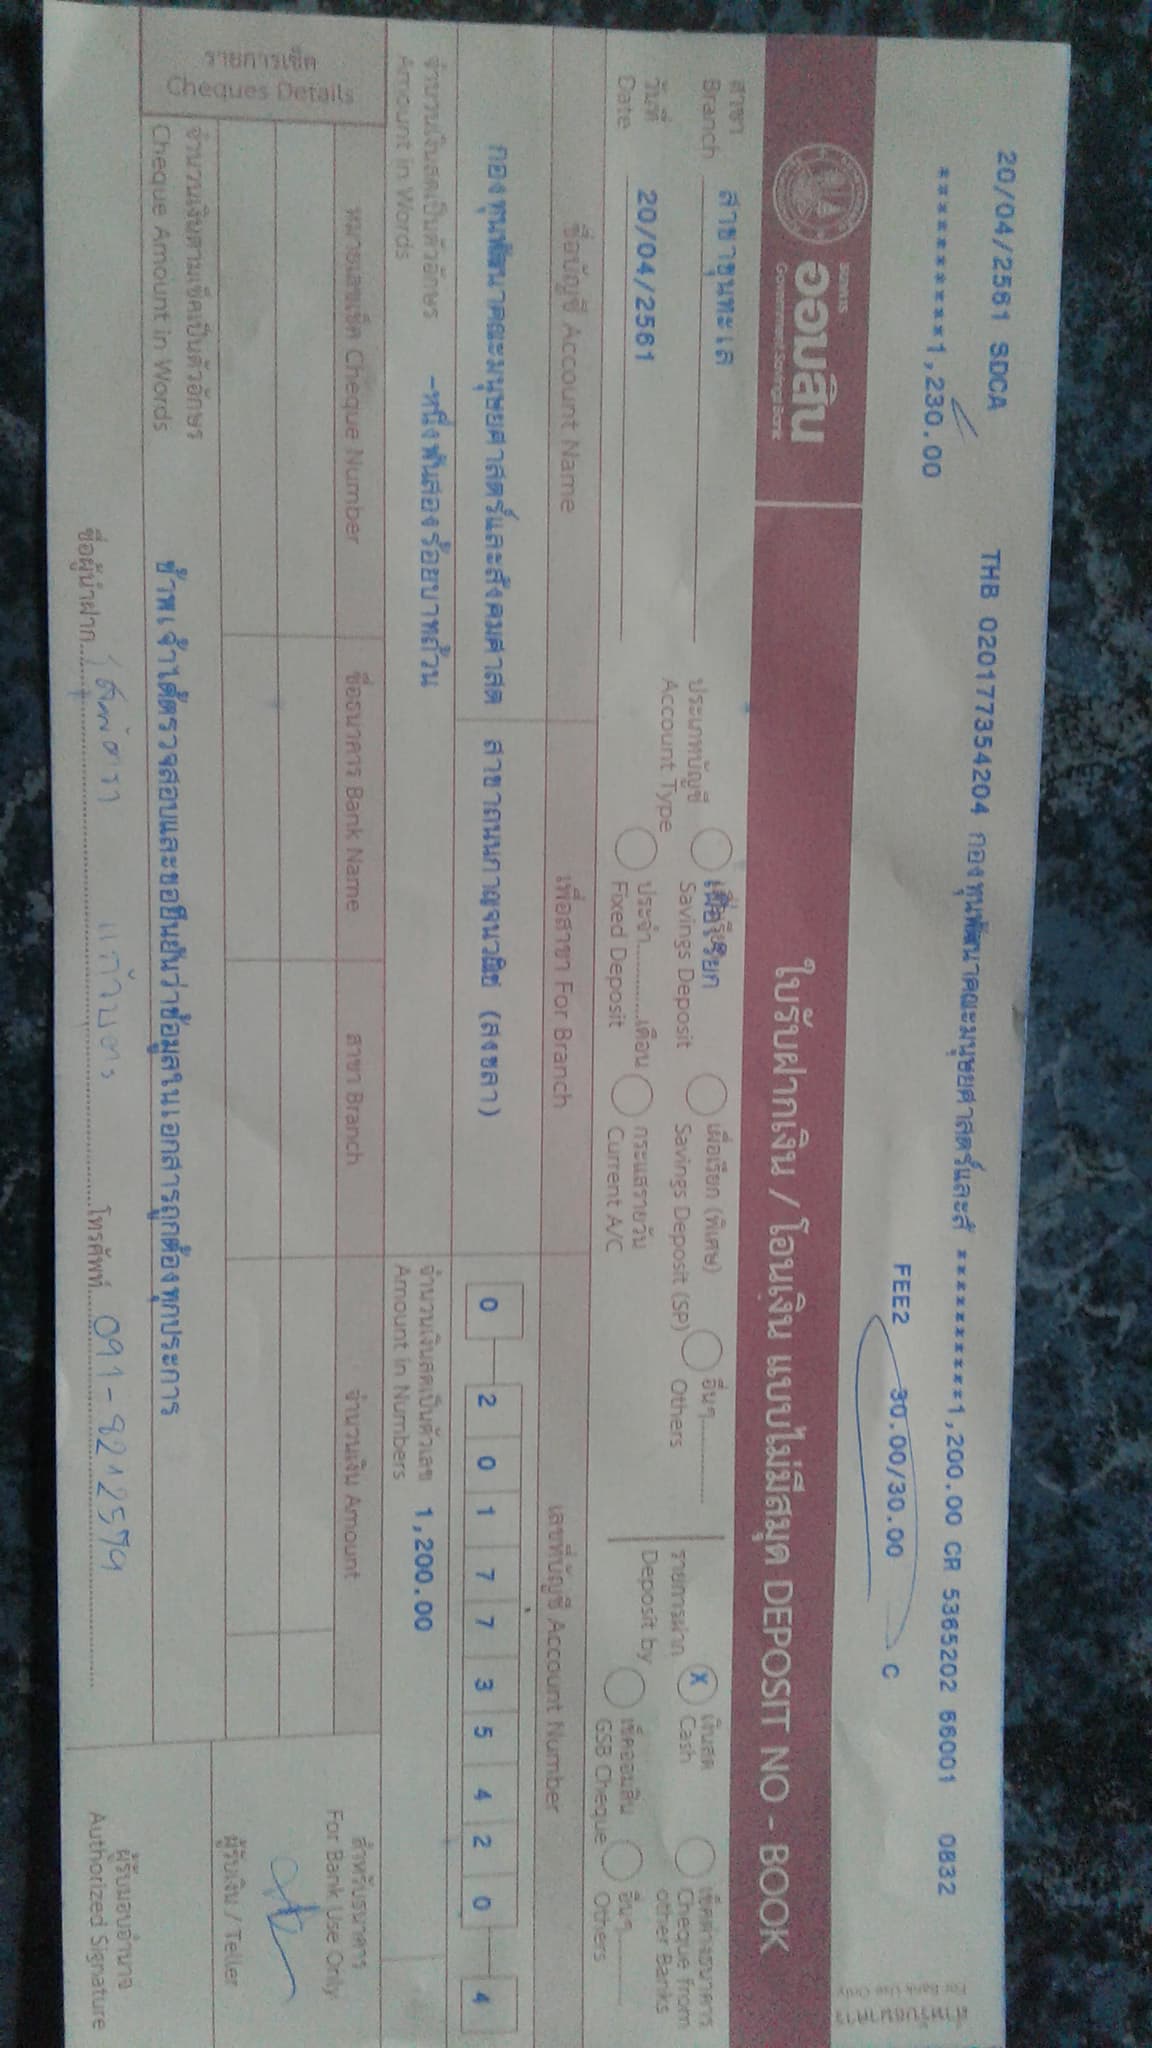 20/04/2561 SDCA THB 020177354204 กองทุนพัฒนาคณะมนุษยศาสตร์และสั ***********1,200.00 CR 5365202 66001 0832
***********1,230.00 FEE2 30.00/30.00 C
สำหรับธนาคาร
For Bank Use Only
ธนาคาร
ออมสิน
Government Savings Bank
ใบรับฝากเงิน / โอนเงิน แบบไม่มีสมุด DEPOSIT NO - BOOK
สาขา
Branch สาขาขุนทะเล
วันที่
Date 20/04/2561
ประเภทบัญชี
Account Type
เผื่อเรียก
Savings Deposit
เผื่อเรียก (พิเศษ)
Savings Deposit (SP)
อื่นๆ............
Others
ประจำ............เดือน
Fixed Deposit
กระแสรายวัน
Current A/C
รายการฝาก
Deposit by
X เงินสด
Cash
เช็คต่างธนาคาร
Cheque from
other Banks
เช็คออมสิน
GSB Cheque
อื่นๆ............
Others
ชื่อบัญชี Account Name เพื่อสาขา For Branch เลขที่บัญชี Account Number
กองทุนพัฒนาคณะมนุษยศาสตร์และสังคมศาสต สาขาถนนกาญจนวณิช (สงขลา) 0 2 0 1 7 7 3 5 4 2 0 4
จำนวนเงินสดเป็นตัวอักษร
Amount in Words -หนึ่งพันสองร้อยบาทถ้วน
จำนวนเงินสดเป็นตัวเลข
Amount in Numbers 1,200.00
รายการเช็ค
Cheques Details
หมายเลขเช็ค Cheque Number ชื่อธนาคาร Bank Name สาขา Branch จำนวนเงิน Amount
สำหรับธนาคาร
For Bank Use Only
ผู้รับเงิน / Teller
จำนวนเงินตามเช็คเป็นตัวอักษร
Cheque Amount in Words
ข้าพเจ้าได้ตรวจสอบและขอยืนยันว่าข้อมูลในเอกสารถูกต้องทุกประการ
ชื่อผู้นำฝาก แก้วบตร โทรศัพท์ 091-8212579
ผู้รับมอบอำนาจ
Authorized Signature